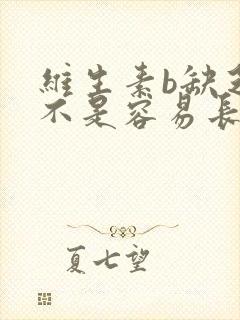 維生素b缺乏
不是容易長
夏七望